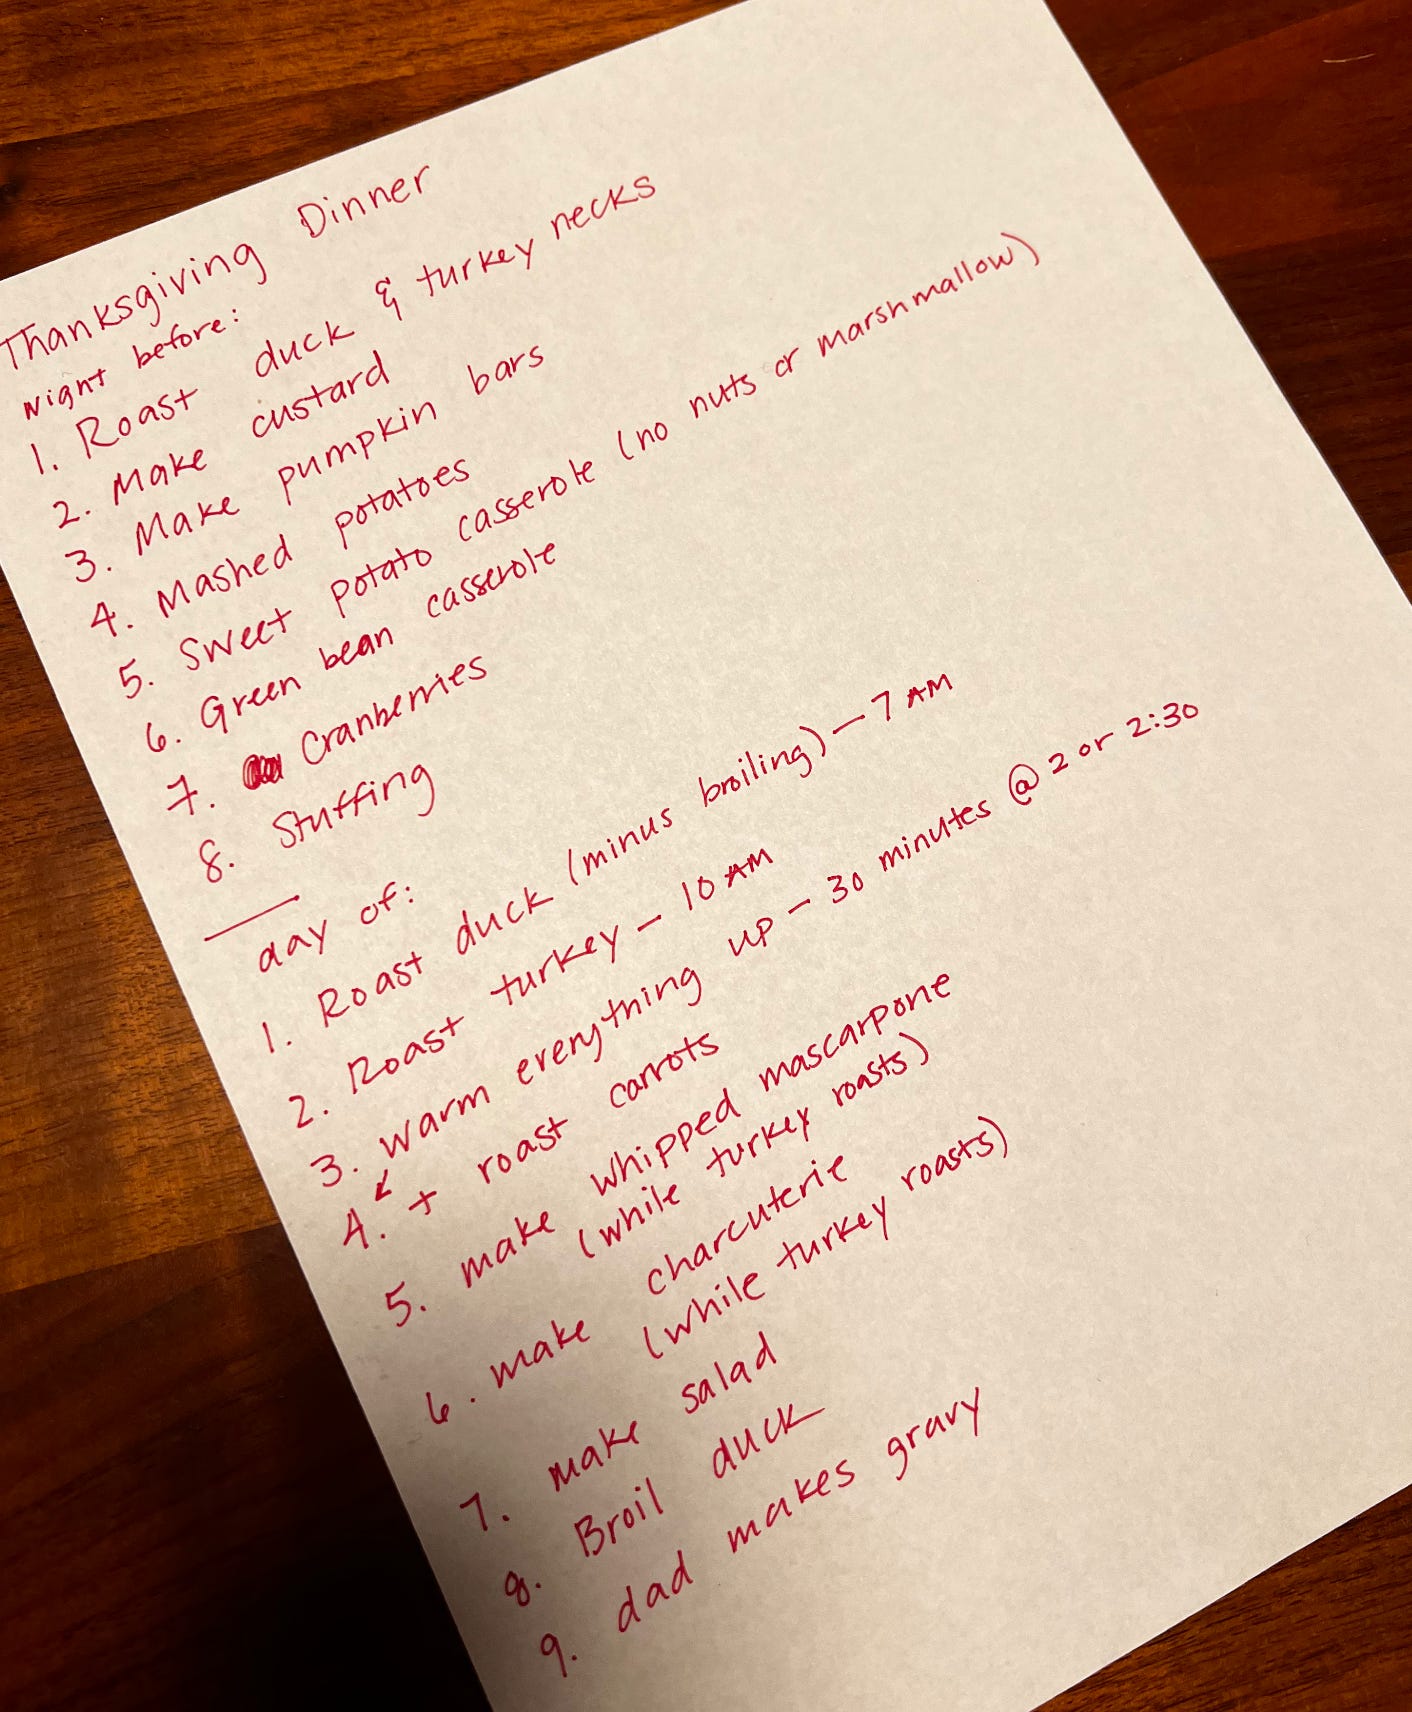 Thanksgiving Dinner
Night before:
1. Roast duck & turkey necks
2. Make custard
3. Make pumpkin bars
4. Mashed potatoes
5. Sweet potato casserole (no nuts or marshmallow)
6. Green bean casserole
7. Cranberries
8. Stuffing
day of:
1. Roast duck (minus broiling) — 7 AM
2. Roast turkey — 10 AM
3. Warm everything up — 30 minutes @ 2 or 2:30
4. + roast carrots
5. make whipped mascarpone
(while turkey roasts)
6. make charcuterie
(while turkey roasts)
7. make salad
8. Broil duck
9. dad makes gravy